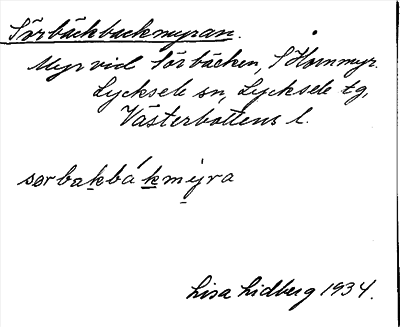 Sörbäckbackmyran.
Myr vid Sörbäcken, S Hornmyr.
Lycksele sn, Lycksele tg,
Västerbottens l.
sorbakbákmyra
Lisa Lidberg 1934.